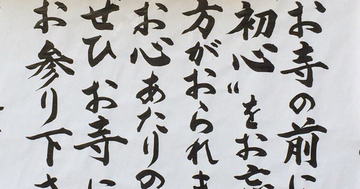 お寺の前に
初心〟をお忘
方がおられま
お心あたりの
ぜひお寺に
お参り下さ